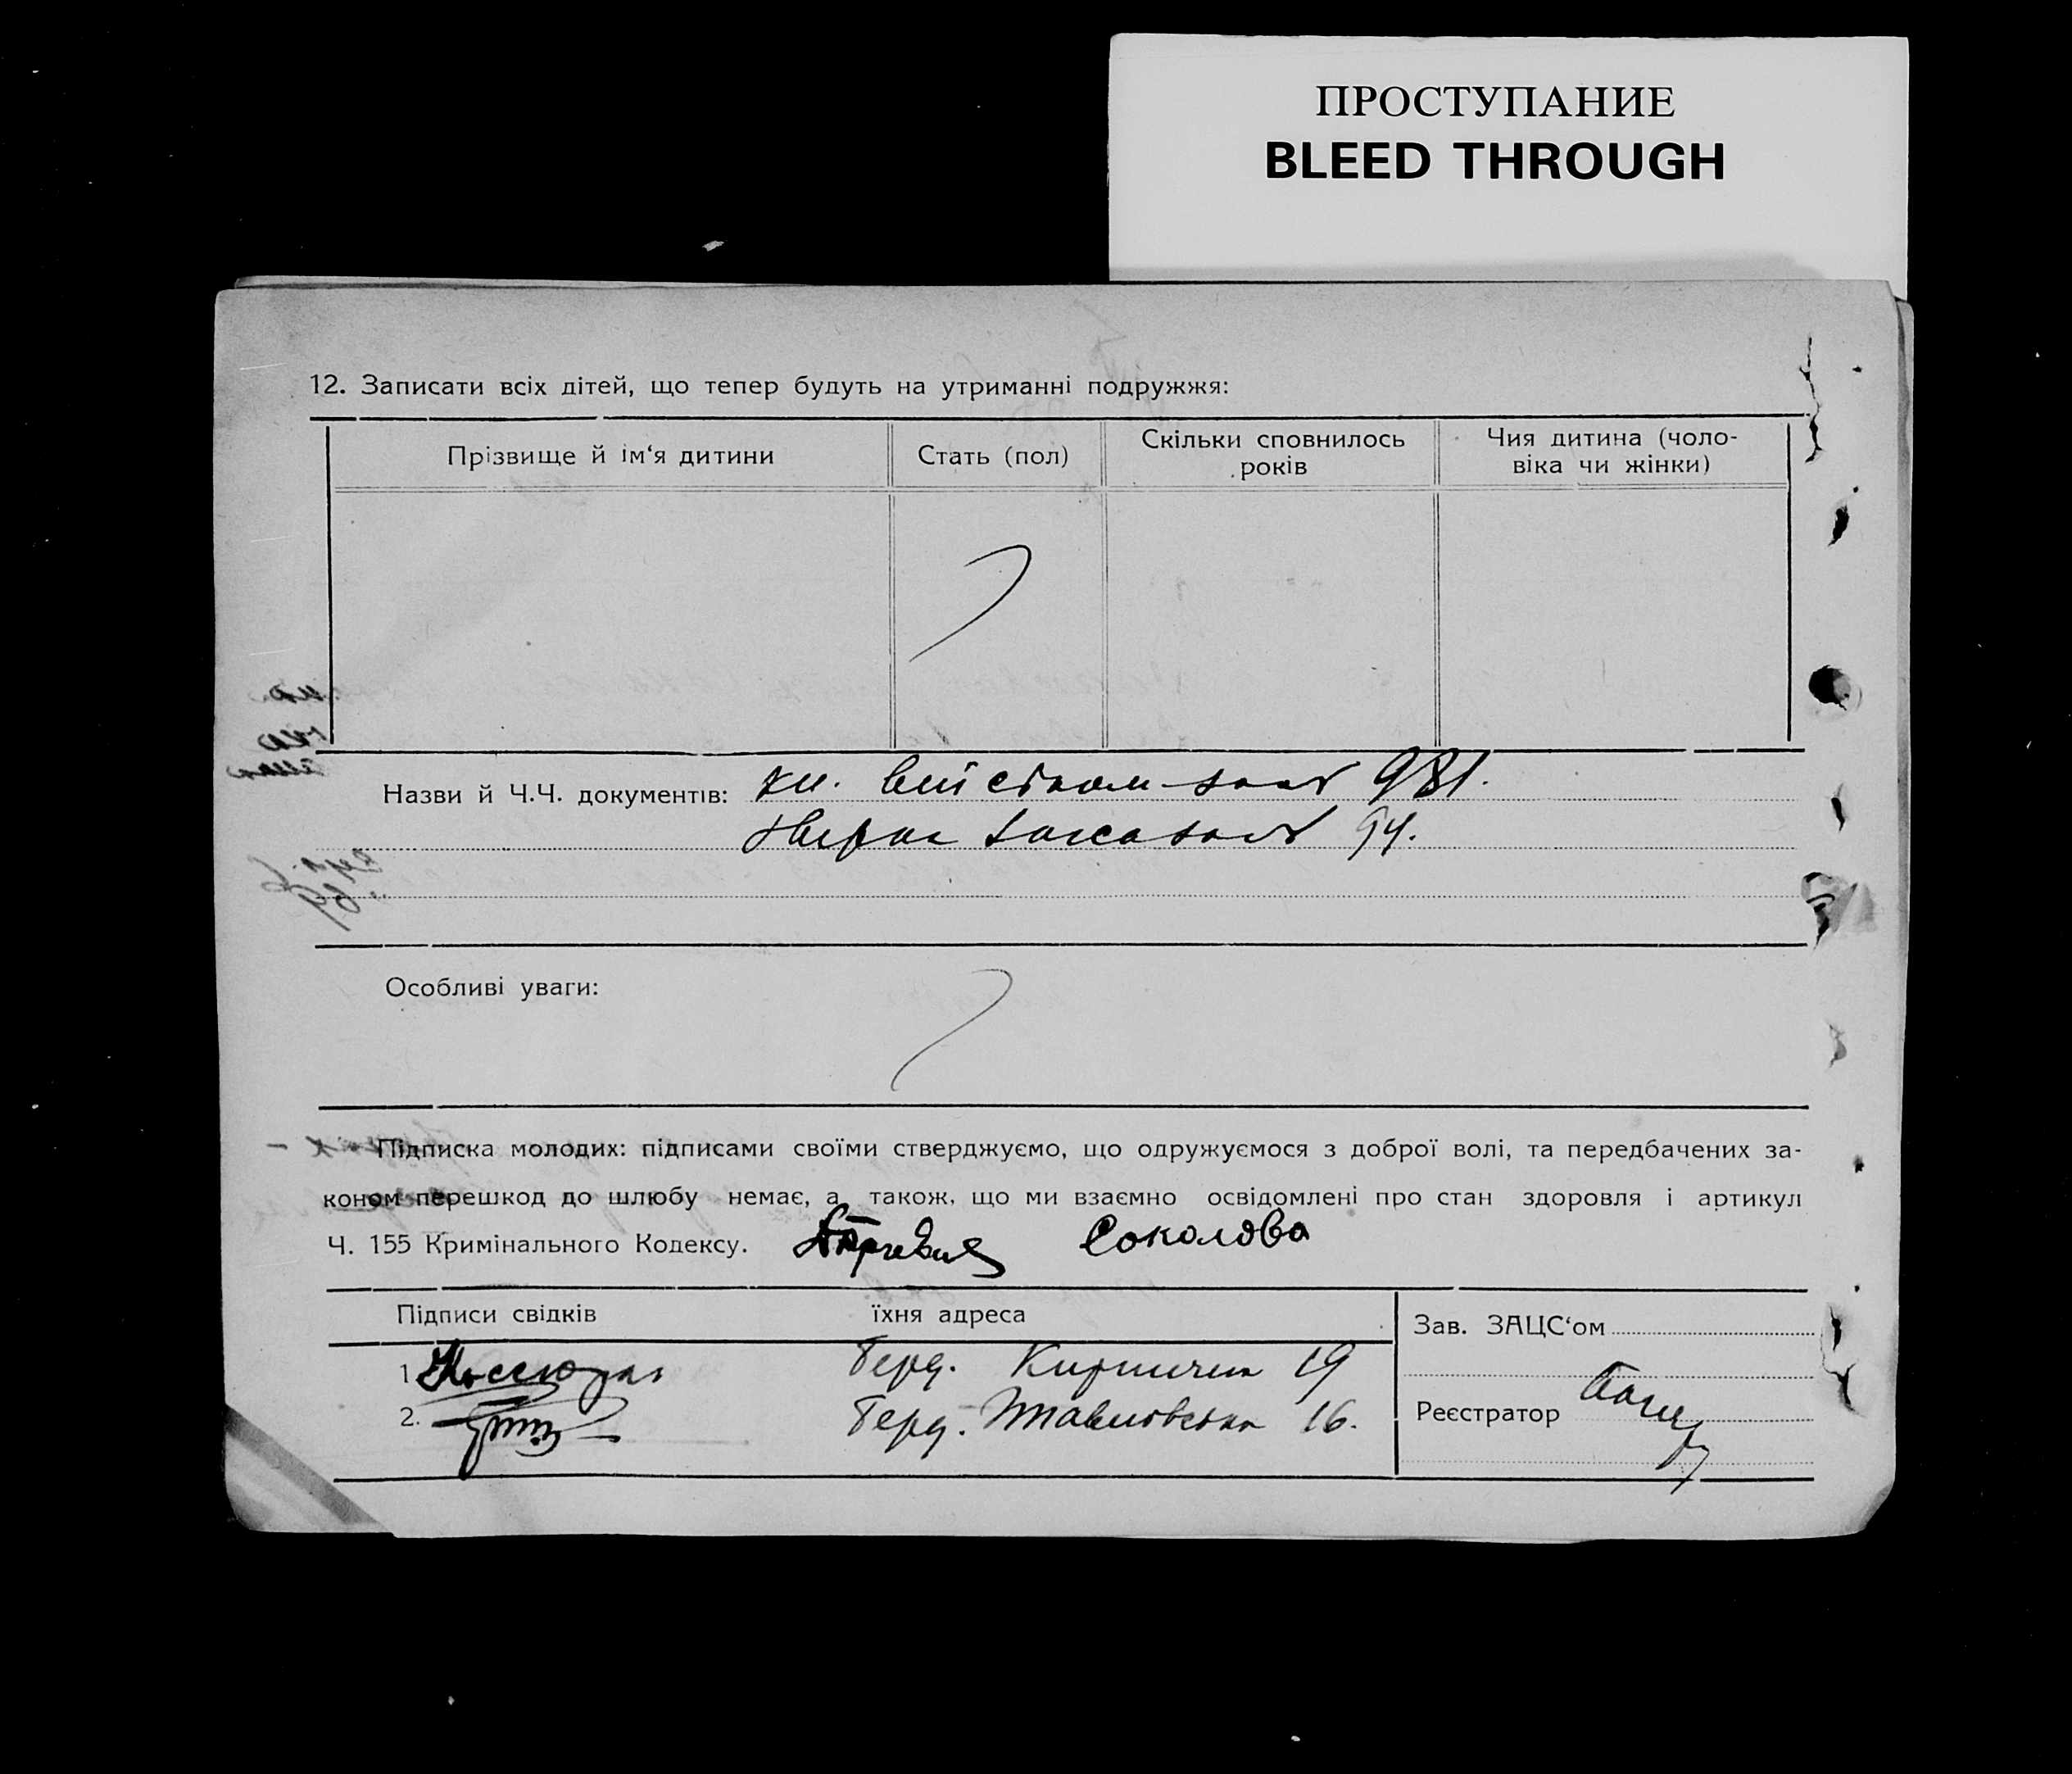 ПРОСТУПАНИЕ
BLEED THROUGH
12. Записати всіх дітей, що тепер будуть на утриманні подружжя:
Прізвище й ім'я дитини Стать (пол) Скільки сповнилось років Чия дитина (чоловіка чи жінки)
Назви й Ч.Ч. документів: кн. 981.
94.
Особливі уваги:
Підписка молодих: підписами своїми стверджуємо, що одружуємося з доброї волі, та передбачених за-
коном перешкод до шлюбу немає, а також, що ми взаємно освідомлені про стан здоровля і артикул
Ч. 155 Кримінального Кодексу. Соколова
Підписи свідків їхня адреса Зав. ЗАЦС'ом
1. 19
2. 16.
Реєстратор